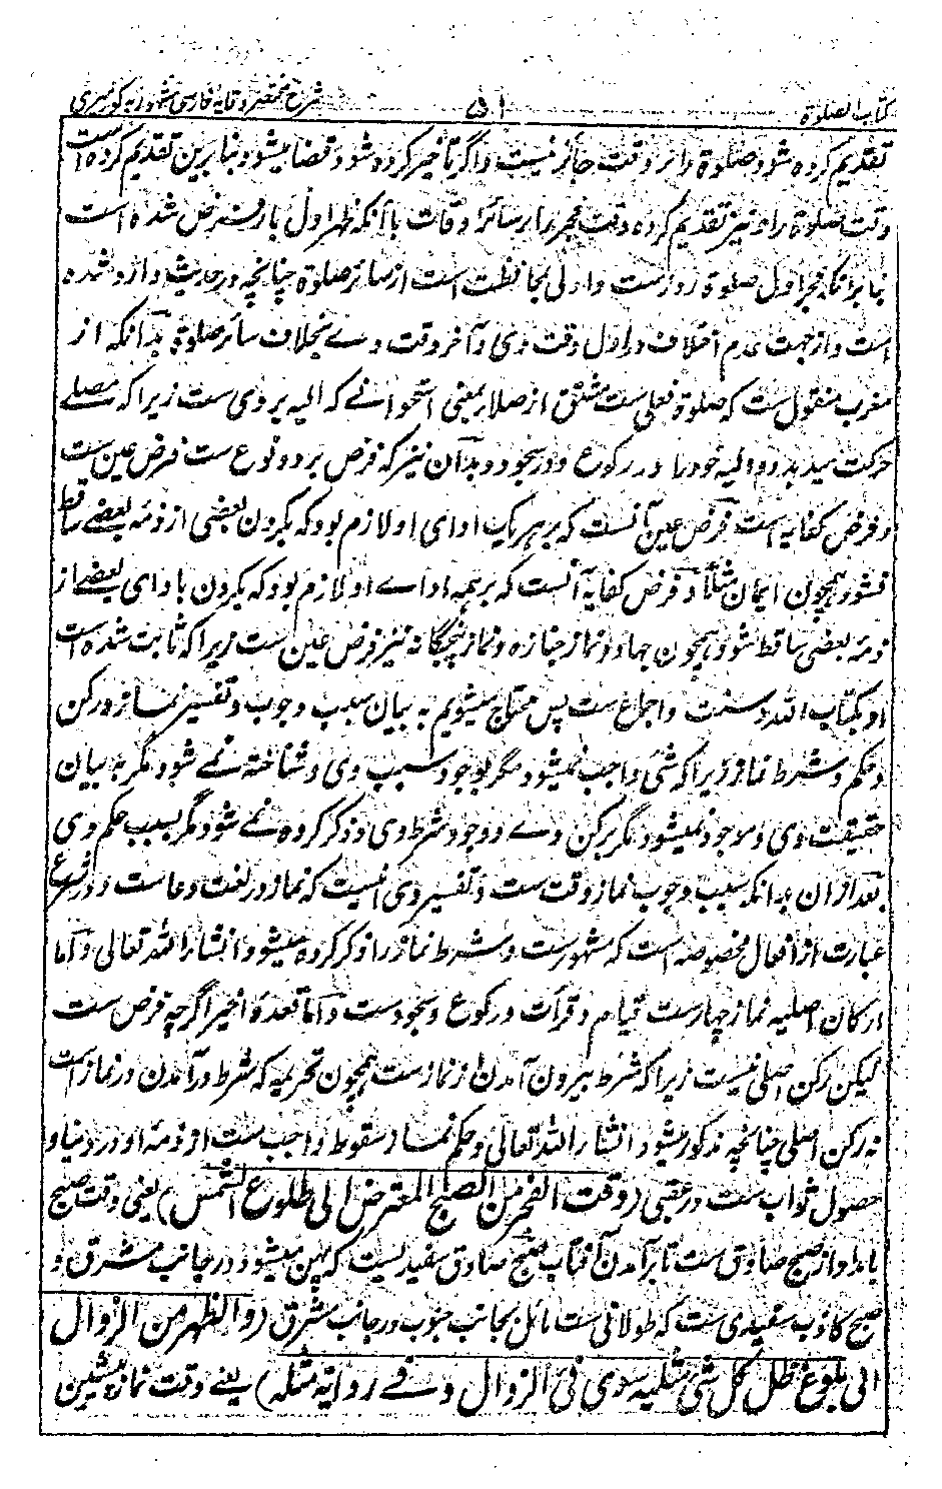 کتاب الصلوة ۵۱ شرح مختصر وقایه فارسی مشهور به کور میری
تقدیم کرده شود صلوة را بر وقت جائز نیست و اگر تأخیر کرده شود قضا میشود بنا برین تقدیم کرده است
وقت صلوة را و نیز تقدیم کرده وقت فجر را بر سائر اوقات با آنکه ظهر اول بار فرض شده است
بنا بر آنکه فجر اول صلوة روز ست و اولی بمحافظت است از سائر صلوة چنانچه در حدیث وارد شده
است و از جهت عدم اختلاف در اول وقت وی و آخر وقت وے بخلاف سائر صلوة بدانکه از
مغرب منقول ست که صلوة فعلی ست مشتق از صلا بمعنی استخوانے که الیه بر وی ست زیرا که مصلے
حرکت میدهد دو الیه خود را در رکوع و در سجود و بدان نیز که فرض بر دو نوع ست فرض عین ست
و فرض کفایه است فرض عین آنست که بر هر یک ادای او لازم بود که بکردن بعضی از ذمه بعضے ساقط
نشود همچون ایمان مثلا و فرض کفایه آنست که بر همه اداے او لازم بود که بکردن با دای بعضے از
ذمه بعضی ساقط شود همچون جهاد و نماز جنازه و نماز پنجگانه نیز فرض عین ست زیرا که ثابت شده است
او بکتاب الله و سنت و اجماع ست پس محتاج میشویم به بیان سبب وجوب و تفسیر نماز و رکن
و حکم و شرط نماز زیرا که شئی واجب نمیشود مگر بوجود سبب وی و شناخته نمے شود مگر به بیان
حقیقت وی و موجود نمیشود مگر برکن وے و وجود شرط وی و ذکر کرده نمے شود مگر بسبب حکم وی
بعد ازان بدانکه سبب وجوب نماز وقت ست و تفسیر وی اینست که نماز در لغت دعاست و در شرع
عبارت از افعال مخصوصه است که مشهور ست و شرط نماز را ذکر کرده میشود انشاء الله تعالی و اما
ارکان اصلیه نماز چهار ست قیام و قرأت و رکوع و سجود ست و اما قعدۀ اخیر اگرچه فرض ست
لیکن رکن اصلی نیست زیرا که شرط بیرون آمدن از نماز ست همچون تحریمه که شرط در آمدن در نماز است
نه رکن اصلی چنانچه مذکور میشود انشاء الله تعالی و حکم نماز سقوط واجب ست از ذمه او در دنیا و
حصول ثواب ست در عقبی (وقت الفجر من الصبح المعترض الی طلوع الشمس) یعنی وقت صبح
بامداد از صبح صادق ست تا بر آمدن آفتاب صبح صادق سفیدیست که پهن میشود در جانب مشرق و
صبح کاذب سفیدی ست که طولانی ست مائل بجانب جنوب در جانب مشرق (والظهر من الزوال
الی بلوغ ظل کل شئ مثلیه سوی فئ الزوال وفے روایة مثله) یعنے وقت نماز پیشین